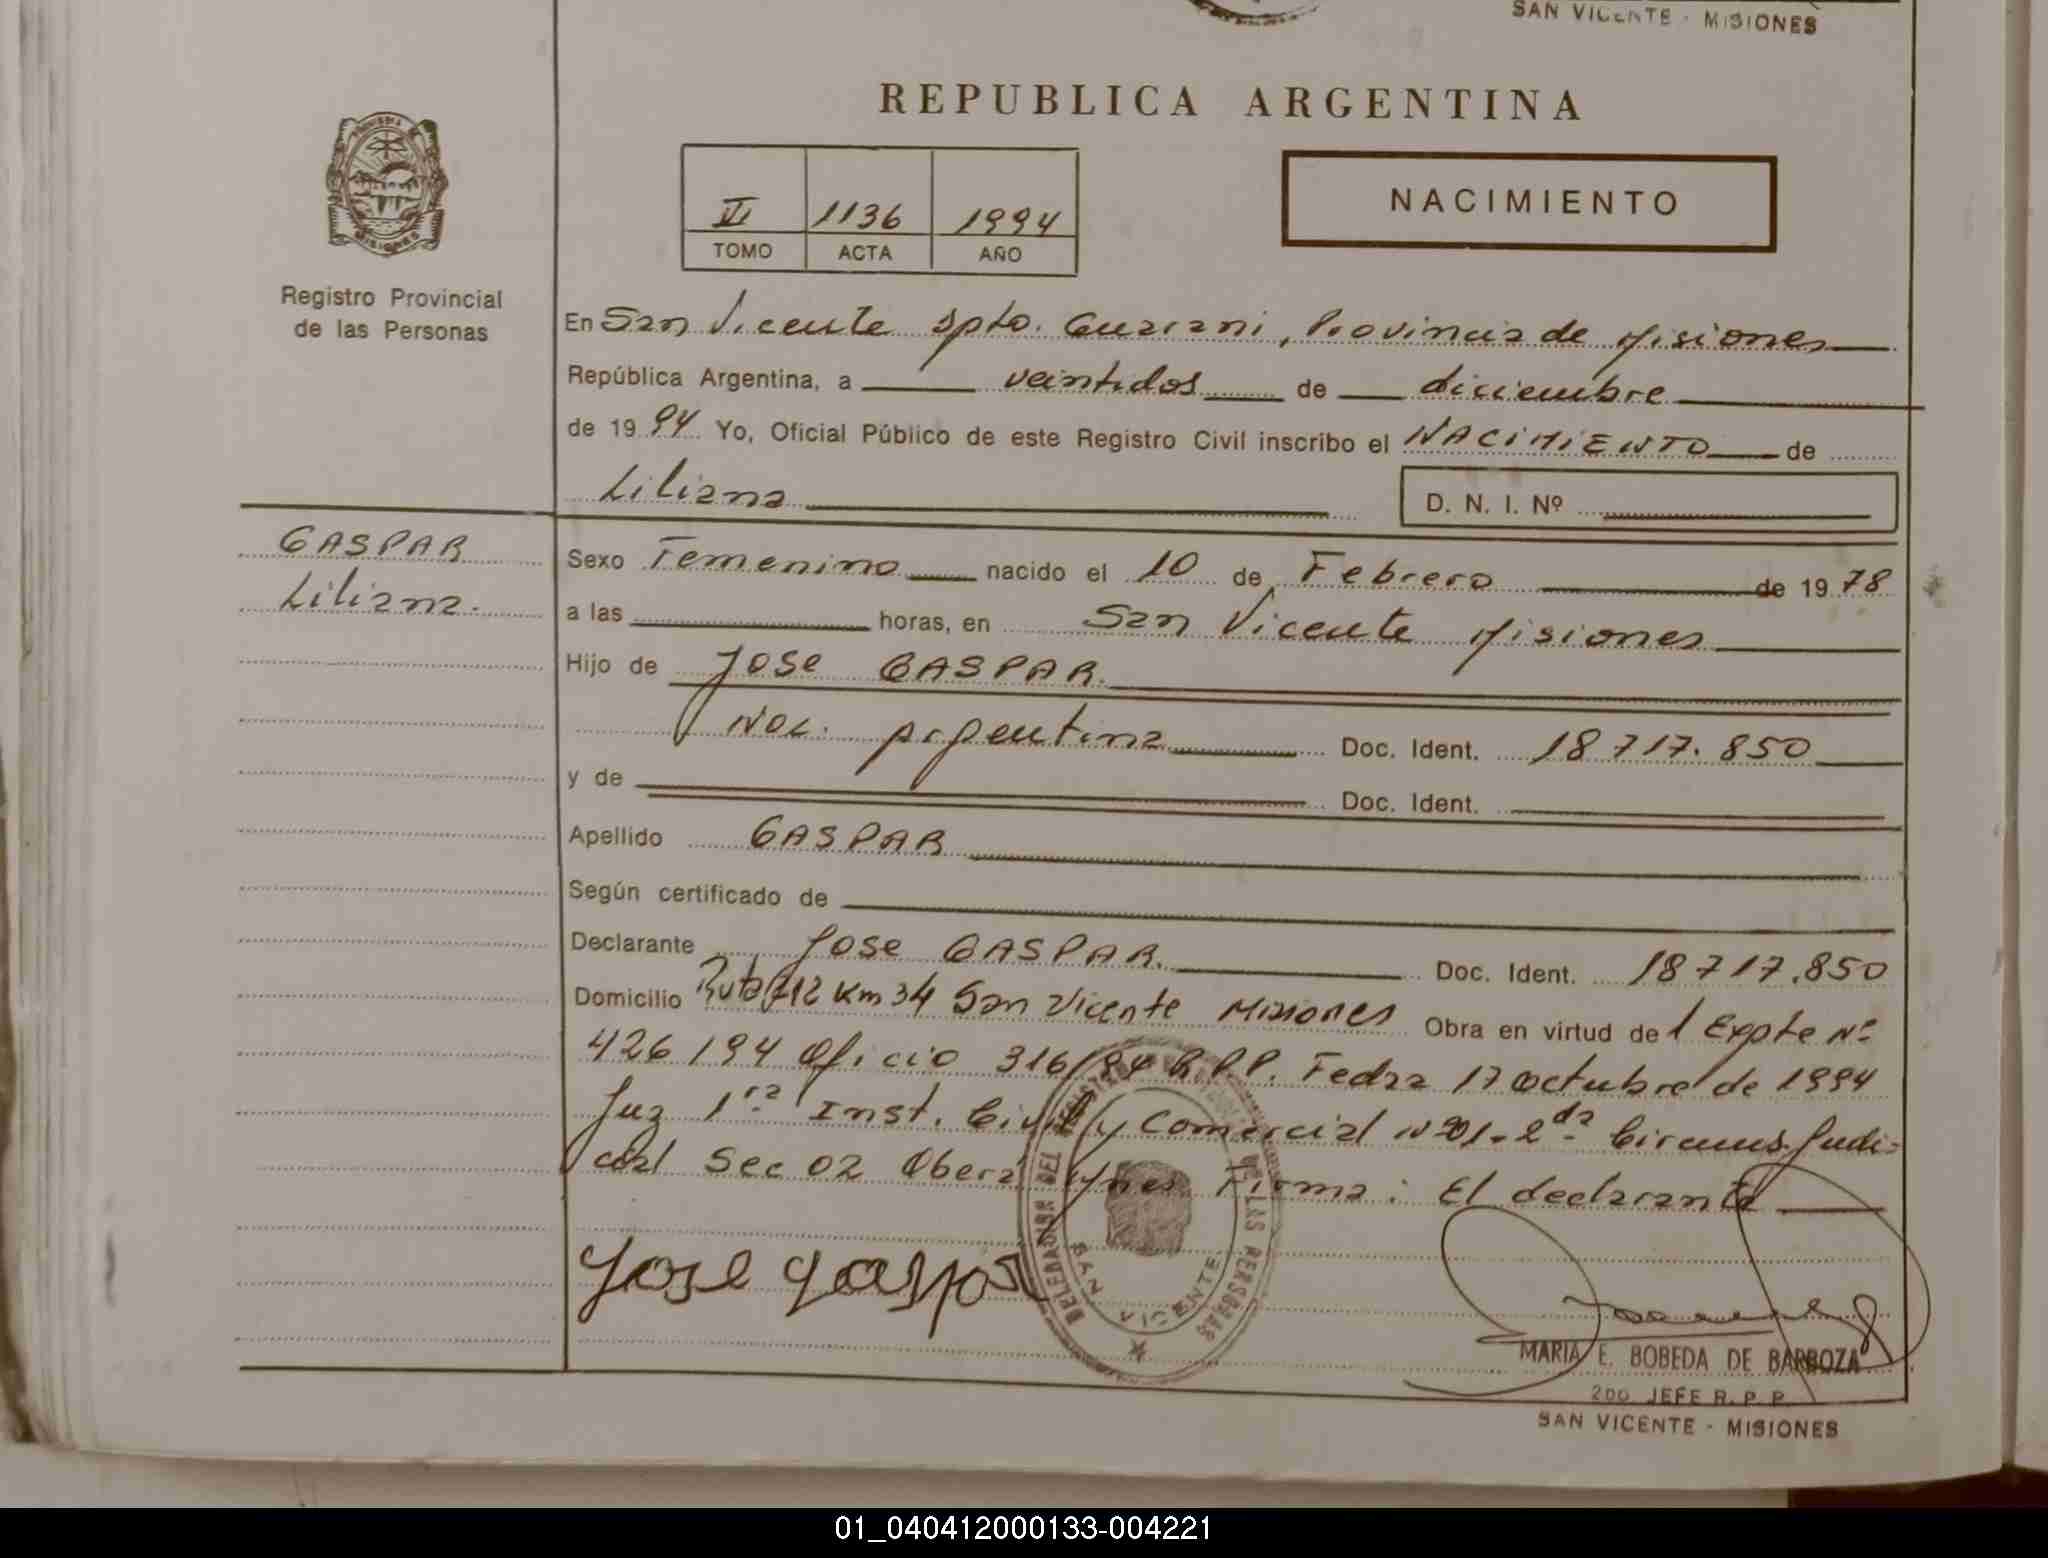 SAN VICENTE - MISIONES
REPUBLICA ARGENTINA
PROVINCIA DE
MISIONES
Registro Provincial
de las Personas
VI 1136 1994
TOMO ACTA AÑO
NACIMIENTO
En San Vicente Dpto. Guarani, Provincia de Misiones
República Argentina, a veintidos de diciembre
de 1994 Yo, Oficial Público de este Registro Civil inscribo el NACIMIENTO de
Liliana D. N. I. Nº
GASPAR
Liliana.
Sexo Femenino nacido el 10 de Febrero de 1978
a las horas, en San Vicente Misiones
Hijo de Jose GASPAR.
Nac. Argentina Doc. Ident. 18717.850
y de Doc. Ident.
Apellido GASPAR
Según certificado de
Declarante Jose GASPAR. Doc. Ident. 18717.850
Domicilio Ruta 212 Km 34 San Vicente Misiones Obra en virtud de 1 Expte Nº
426/94 Oficio 316/94 R.P.P. Fecha 17 octubre de 1994
Juz 1ra Inst. Civil y Comercial Nº 01-2da Circuns. Judi-
cial Sec 02 Oberá Mnes Firma: El declarante
Jose Gaspar
SAN VICENTE
MARIA E. BOBEDA DE BARBOZA
2do JEFE R. P. P.
SAN VICENTE - MISIONES
01_040412000133-004221